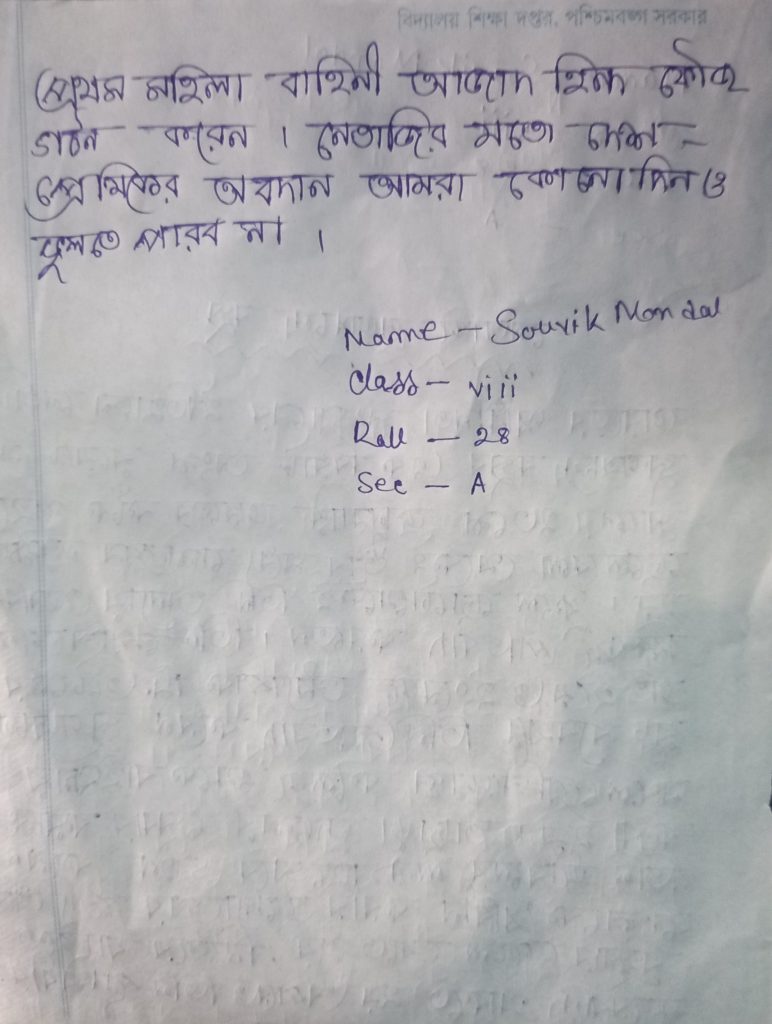 বিদ্যালয় শিক্ষা দপ্তর, পশ্চিমবঙ্গ সরকার
প্রথম মহিলা বাহিনী আজাদ হিন্দ ফৌজ
গঠন করেন । নেতাজির মতো দেশ -
প্রেমিকের অবদান আমরা কোনো দিন ও
ভুলতে পারব না ।
Name - Souvik Mondal
Class - viii
Roll - 28
Sec - A